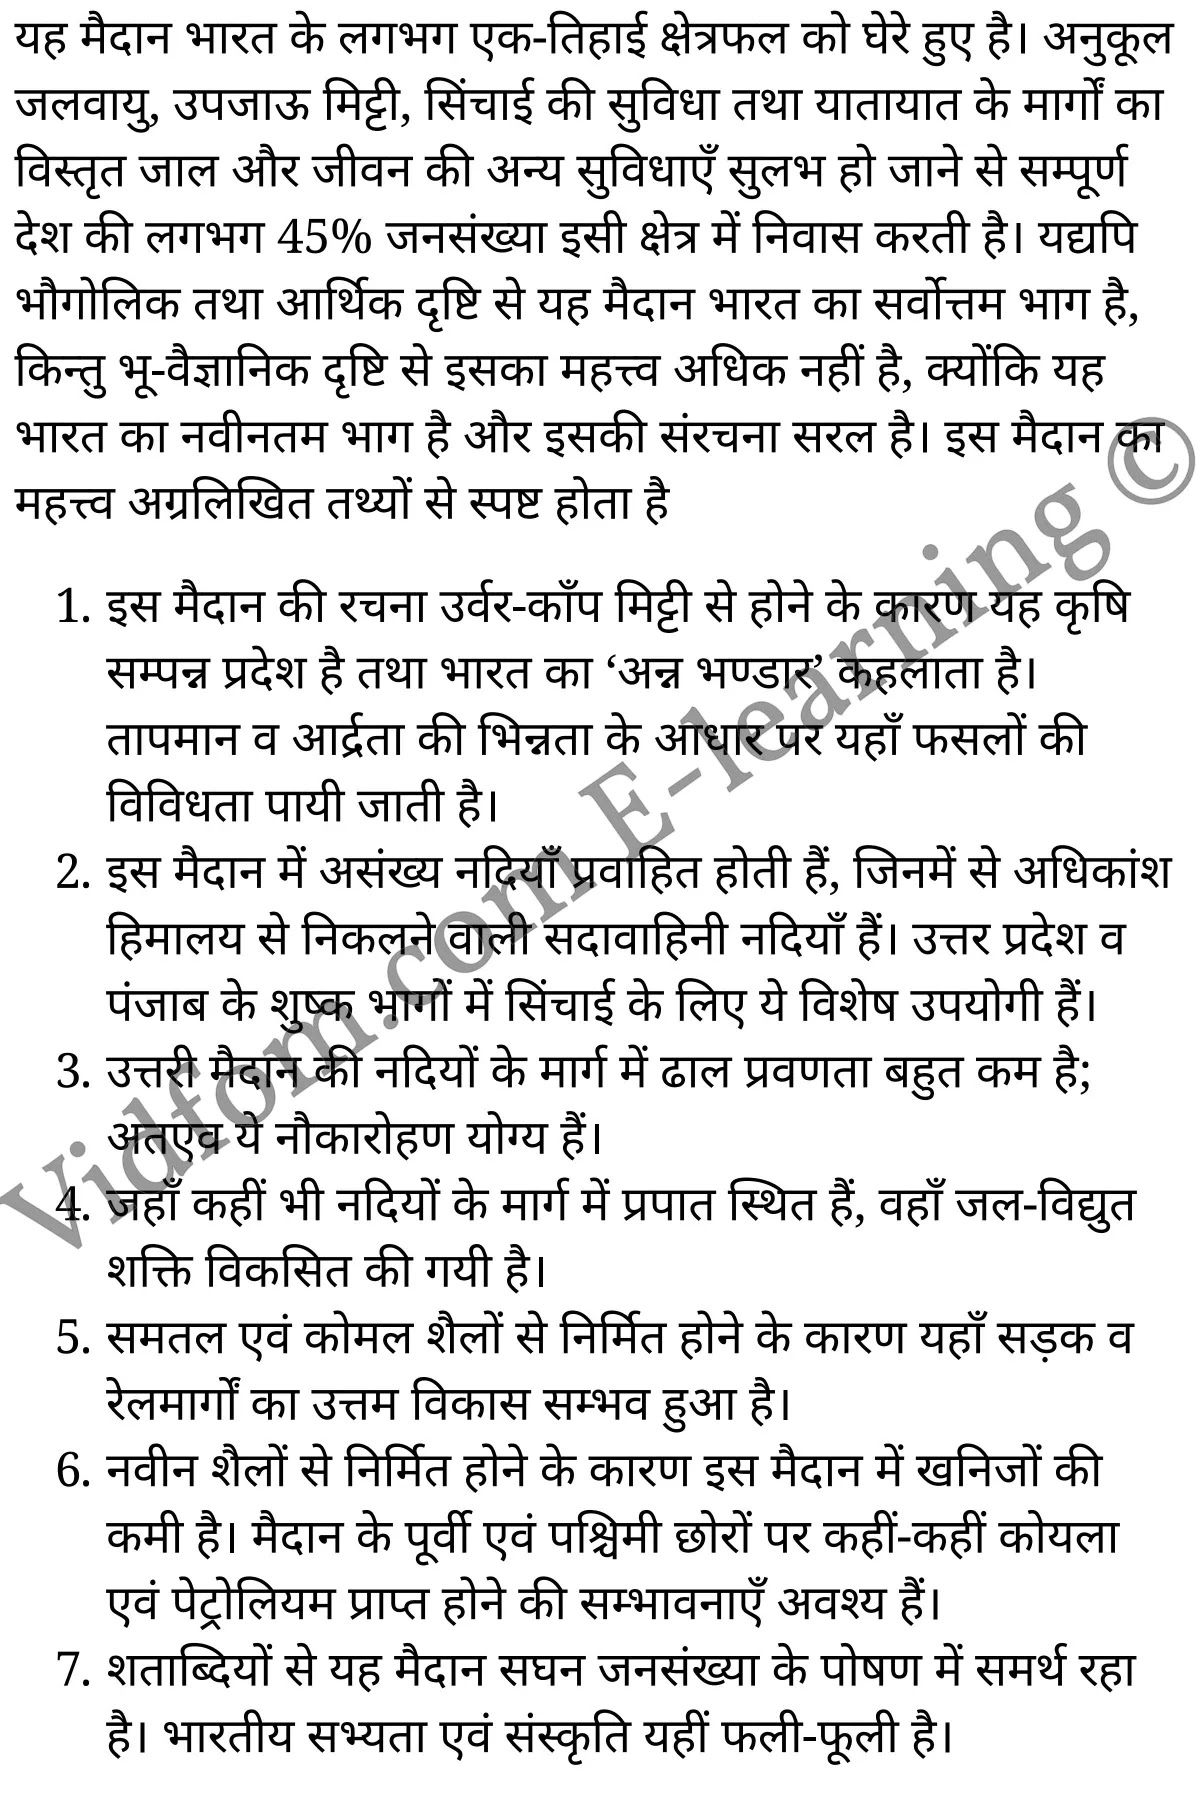 यह मैदान भारत के लगभग एक-तिहाई क्षेत्रफल को घेरे हुए है। अनुकूल
जलवायु, उपजाऊ मिट्टी, सिंचाई की सुविधा तथा यातायात के मार्गों का
विस्तृत जाल और जीवन की अन्य सुविधाएँ सुलभ हो जाने से सम्पूर्ण
देश की लगभग 45% जनसंख्या इसी क्षेत्र में निवास करती है। यद्यपि
भौगोलिक तथा आर्थिक दृष्टि से यह मैदान भारत का सर्वोत्तम भाग है,
किन्तु भू-वैज्ञानिक दृष्टि से इसका महत्त्व अधिक नहीं है, क्योंकि यह
भारत का नवीनतम भाग है और इसकी संरचना सरल है। इस मैदान का
महत्त्व अग्रलिखित तथ्यों से स्पष्ट होता है
1. इस मैदान की रचना उर्वर-काँप मिट्टी से होने के कारण यह कृषि
सम्पन्न प्रदेश है तथा भारत का ‘अन्न भण्डार’ कहलाता है।
तापमान व आर्द्रता की भिन्नता के आधार पर यहाँ फसलों की
विविधता पायी जाती है।
2. इस मैदान में असंख्य नदियाँ प्रवाहित होती हैं, जिनमें से अधिकांश
हिमालय से निकलने वाली सदावाहिनी नदियाँ हैं। उत्तर प्रदेश व
पंजाब के शुष्क भागों में सिंचाई के लिए ये विशेष उपयोगी हैं।
3. उत्तरी मैदान की नदियों के मार्ग में ढाल प्रवणता बहुत कम है;
अतएव ये नौकारोहण योग्य हैं।
4. जहाँ कहीं भी नदियों के मार्ग में प्रपात स्थित हैं, वहाँ जल-विद्युत
शक्ति विकसित की गयी है।
5. समतल एवं कोमल शैलों से निर्मित होने के कारण यहाँ सड़क व
रेलमार्गों का उत्तम विकास सम्भव हुआ है।
6. नवीन शैलों से निर्मित होने के कारण इस मैदान में खनिजों की
कमी है। मैदान के पूर्वी एवं पश्चिमी छोरों पर कहीं-कहीं कोयला
एवं पेट्रोलियम प्राप्त होने की सम्भावनाएँ अवश्य हैं।
7. शताब्दियों से यह मैदान सघन जनसंख्या के पोषण में समर्थ रहा
है। भारतीय सभ्यता एवं संस्कृति यहीं फली-फूली है।
Vidfom.com E-learning ©